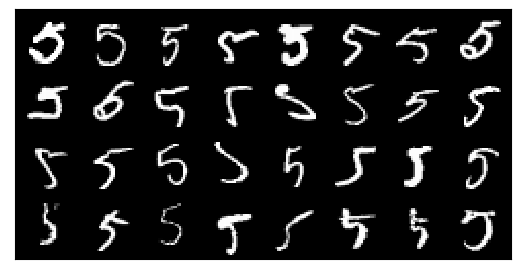 5 5 5 5 5 5 5 5
5 5 5 5 5 5 5 5
5 5 5 5 5 5 5 5
5 5 5 5 5 5 5 5